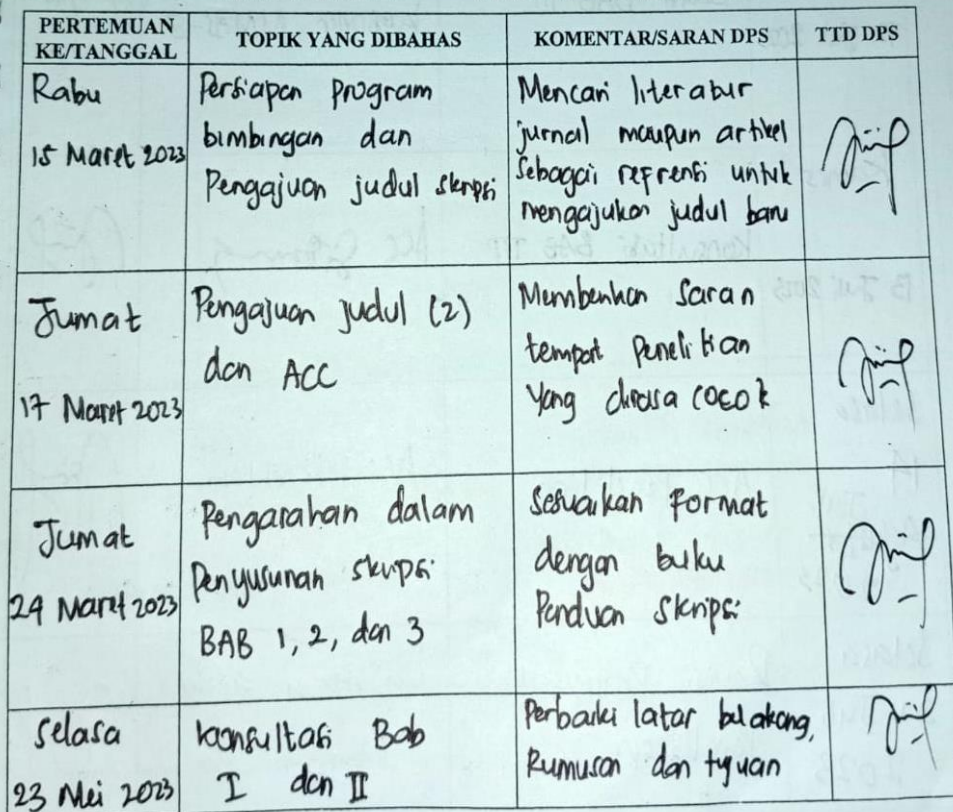 PERTEMUAN KE/TANGGAL
TOPIK YANG DIBAHAS
KOMENTAR/SARAN DPS
TTD DPS
Rabu
15 Maret 2023
Persiapan program
bimbingan dan
Pengajuan judul skripsi
Mencari literatur
jurnal maupun artikel
Sebagai refrensi untuk
mengajukan judul baru
Jumat
17 Maret 2023
Pengajuan judul (2)
dan ACC
Memberikan Saran
tempat Penelitian
Yang dirasa cocok
Jumat
24 Maret 2023
Pengarahan dalam
Penyusunan skripsi
BAB 1, 2, dan 3
Sesuaikan Format
dengan buku
Panduan Skripsi
Selasa
23 Mei 2023
konsultasi Bab
I dan II
Perbaiki latar belakang,
Rumusan dan tujuan